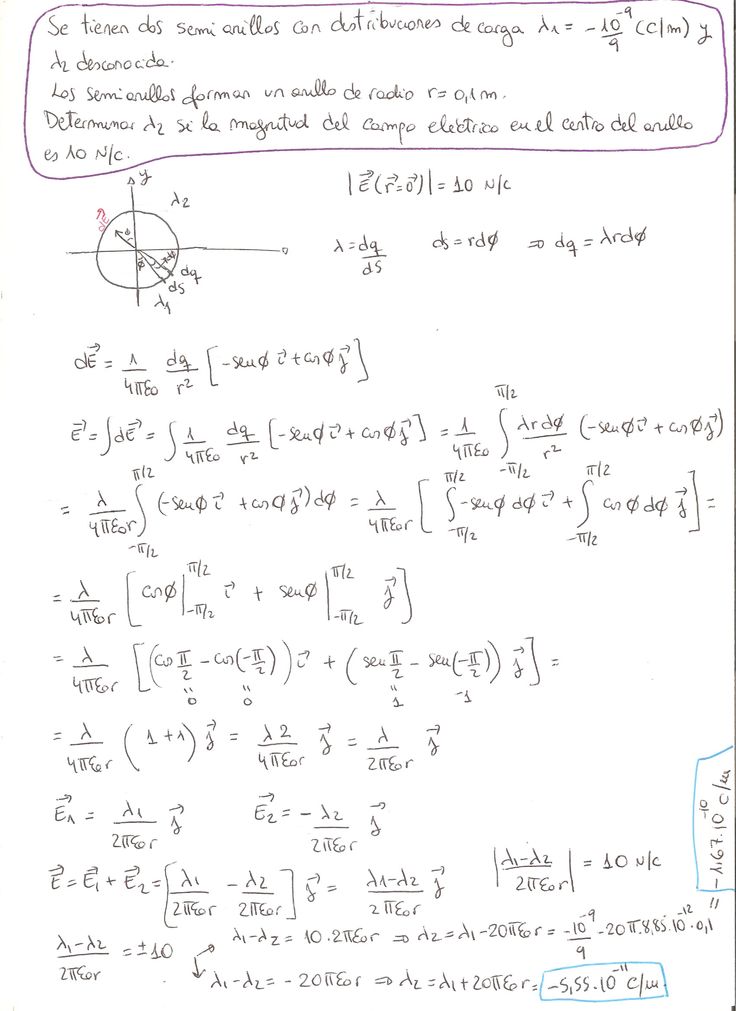 Se tienen dos semianillos con distribuciones de carga λ₁ = -10⁻⁹/9 (C/m) y
λ₂ desconocida.
Los semianillos forman un anillo de radio r = 0,1 m.
Determinar λ₂ si la magnitud del campo eléctrico en el centro del anillo
es 10 N/C.
y
λ₂
|E⃗(r⃗=0⃗)| = 10 N/C
dE⃗
r
φ
dφ
dq
ds
λ₁
λ = dq/ds ds = rdφ ⇒ dq = λrdφ
dE⃗ = 1/4πε₀ dq/r² [-senφ i⃗ + cosφ j⃗]
E⃗ = ∫dE⃗ = ∫ 1/4πε₀ dq/r² [-senφ i⃗ + cosφ j⃗] = 1/4πε₀ ∫_{-π/2}^{π/2} λrdφ/r² (-senφ i⃗ + cosφ j⃗)
= λ/4πε₀r ∫_{-π/2}^{π/2} (-senφ i⃗ + cosφ j⃗) dφ = λ/4πε₀r [∫_{-π/2}^{π/2} -senφ dφ i⃗ + ∫_{-π/2}^{π/2} cosφ dφ j⃗] =
= λ/4πε₀r [cosφ |_{-π/2}^{π/2} i⃗ + senφ |_{-π/2}^{π/2} j⃗]
= λ/4πε₀r [(cos π/2 - cos(-π/2)) i⃗ + (sen π/2 - sen(-π/2)) j⃗] =
" " " "
0 0 1 -1
= λ/4πε₀r (1+1) j⃗ = λ2/4πε₀r j⃗ = λ/2πε₀r j⃗
E⃗₁ = λ₁/2πε₀r j⃗ E⃗₂ = -λ₂/2πε₀r j⃗
E⃗ = E⃗₁ + E⃗₂ = [λ₁/2πε₀r - λ₂/2πε₀r] j⃗ = λ₁-λ₂/2πε₀r j⃗ |λ₁-λ₂/2πε₀r| = 10 N/C
λ₁-λ₂/2πε₀r = ±10
λ₁-λ₂ = 10·2πε₀r ⇒ λ₂ = λ₁-20πε₀r = -10⁻⁹/9 - 20π·8,85·10⁻¹²·0,1 = -1,67·10⁻¹⁰ C/m
λ₁-λ₂ = -20πε₀r ⇒ λ₂ = λ₁+20πε₀r = -5,55·10⁻¹¹ C/m